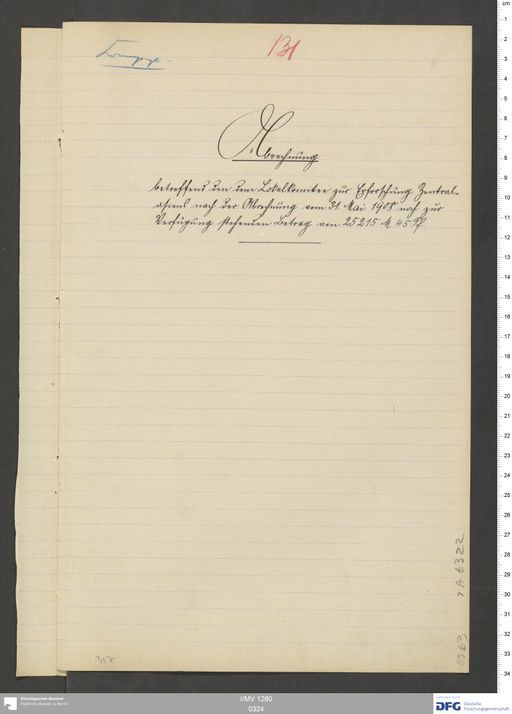 131
Abrechnung
betreffend den dem Lokalkomitee zur Erforschung Zentral-
asiens nach der Abrechnung vom 31. Mai 1908 noch zur
Verfügung stehenden Betrag von 25 215 M 45 Pf.
7 A 6322
6563
317
Ethnologisches Museum
Staatliche Museen zu Berlin
I/MV 1260
0324
DFG Deutsche
Forschungsgemeinschaft
cm
1
2
3
4
5
6
7
8
9
10
11
12
13
14
15
16
17
18
19
20
21
22
23
24
25
26
27
28
29
30
31
32
33
34